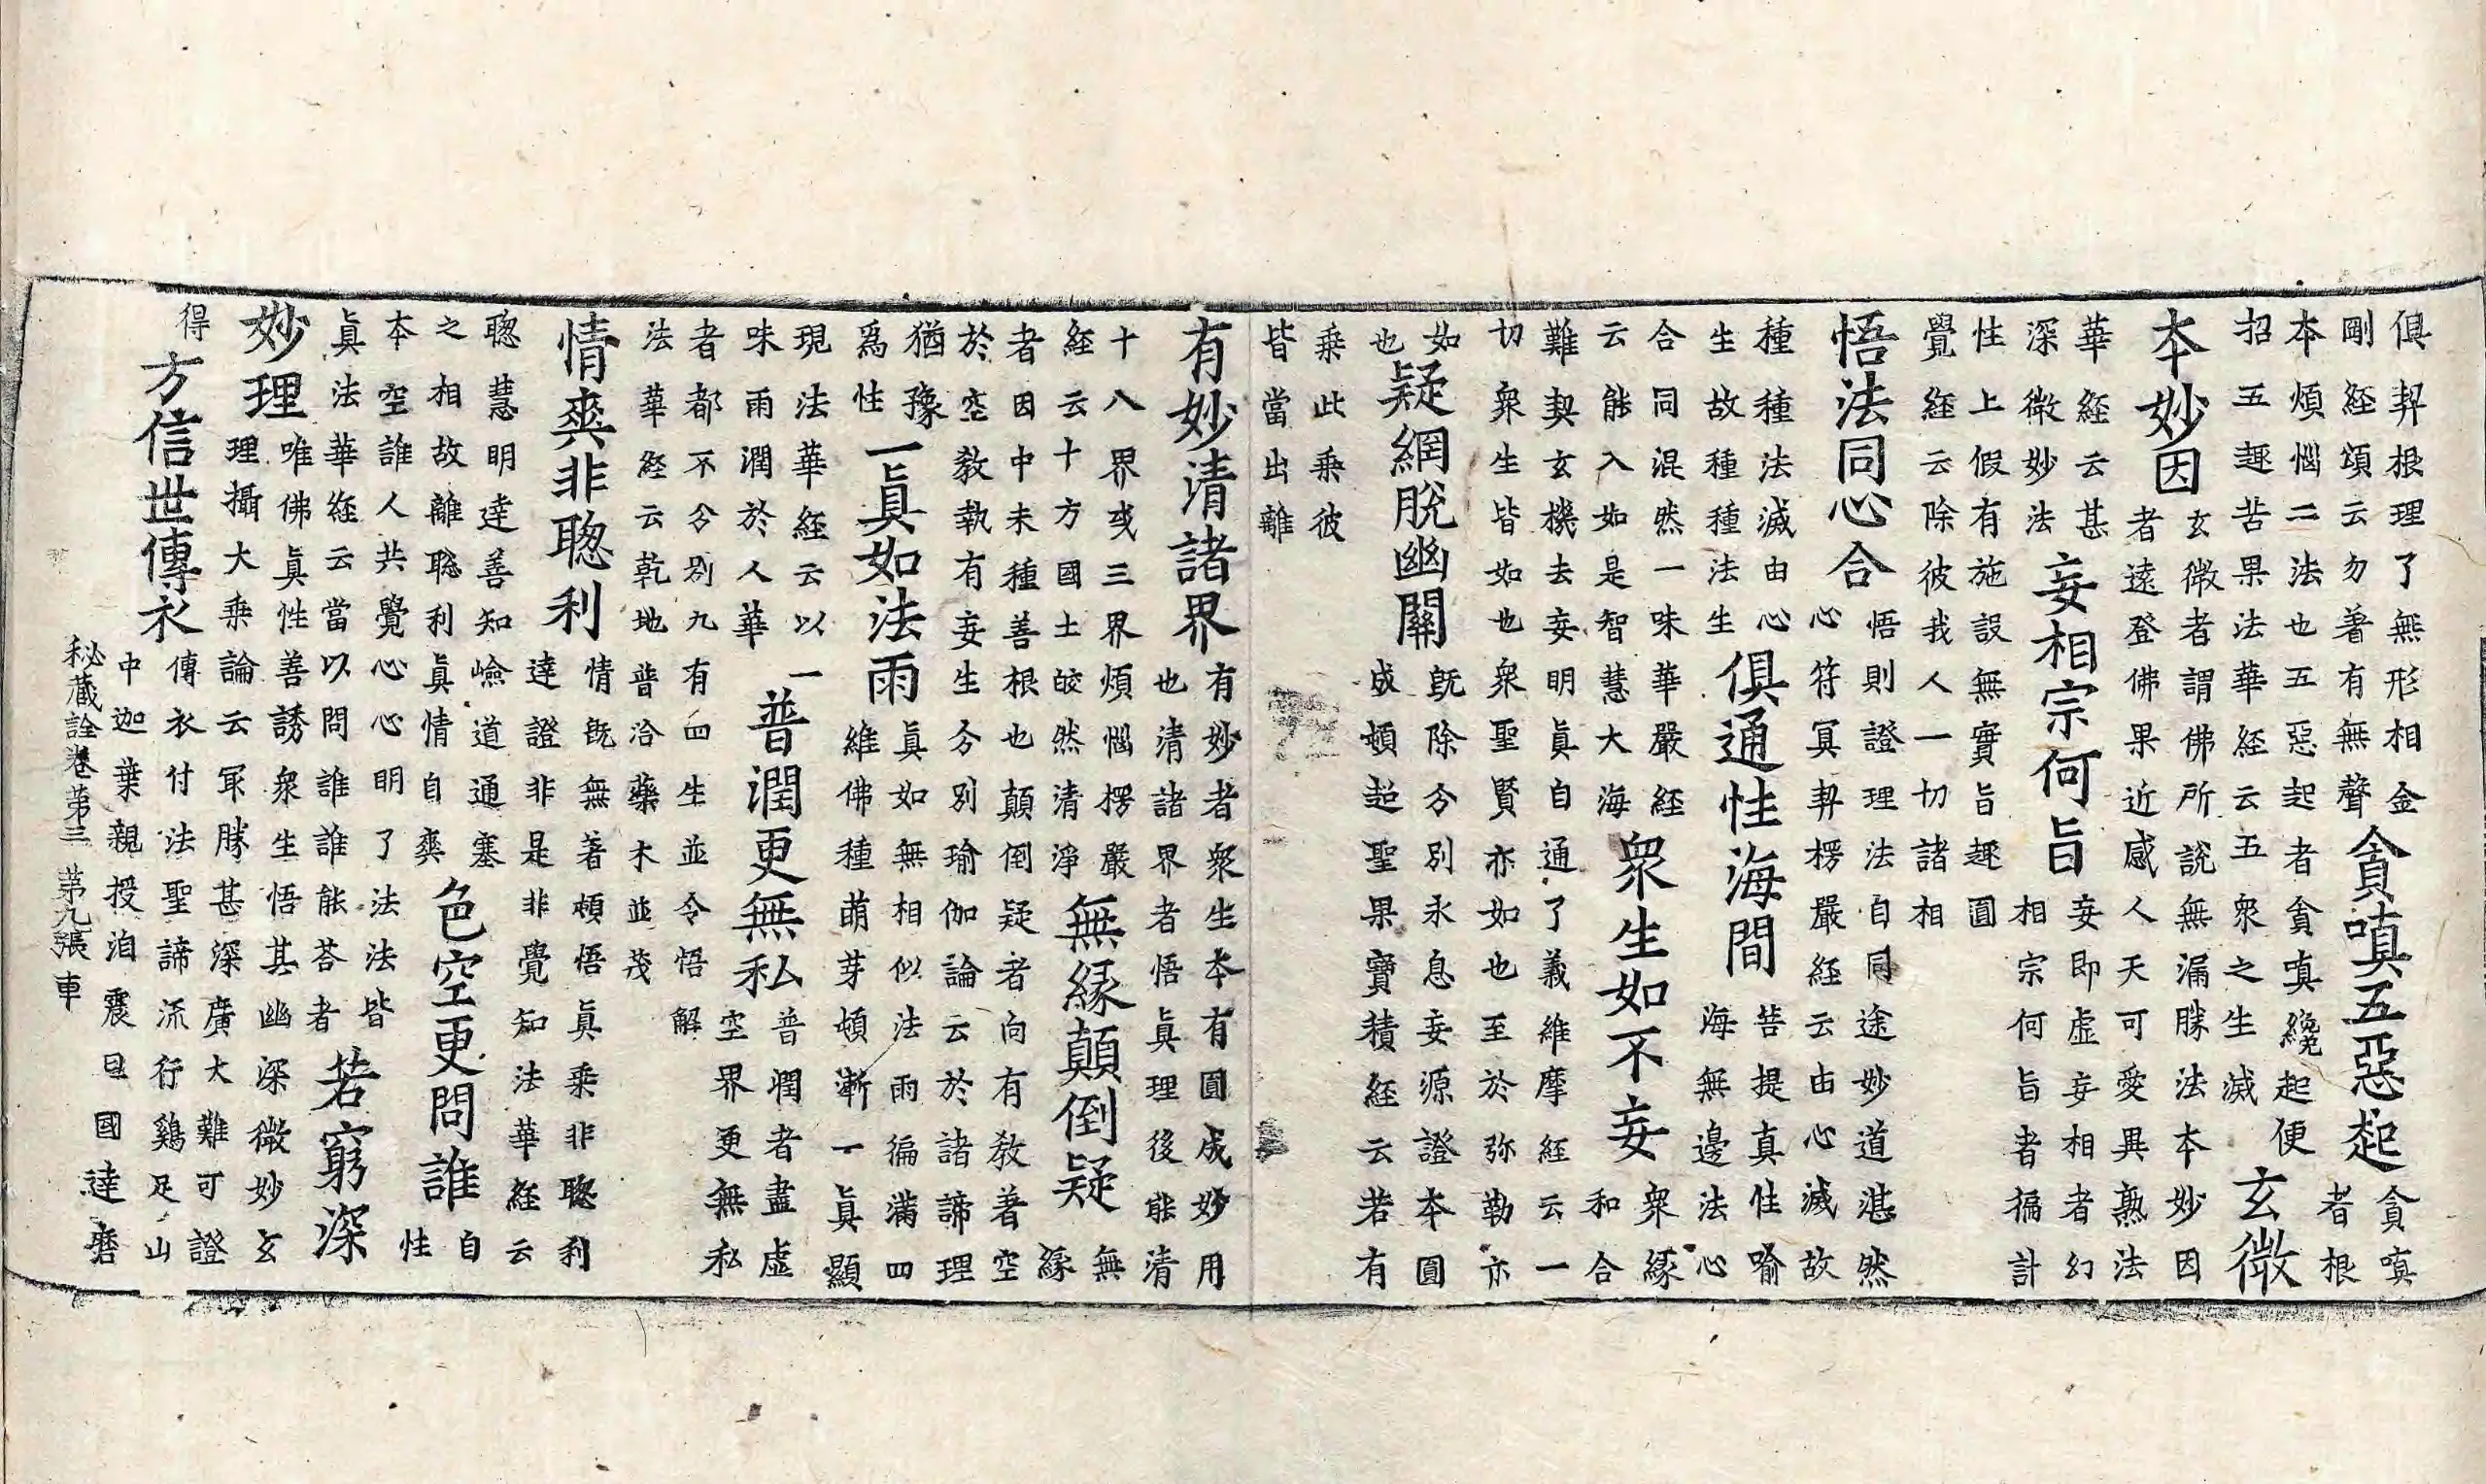 俱契根理了無形相金
剛經頌云勿著有無聲
貪嗔五惡起
貪嗔
者根
本煩惱二法也五惡起者貪嗔纔起便
招五趣苦果法華經云五衆之生滅
玄微
本妙因
玄微者謂佛所說無漏勝法本妙因
者遠登佛果近感人天可愛異熟法
華經云甚
深微妙法
妄相宗何旨
妄即虛妄相者幻
相宗何旨者徧計
性上假有施設無實旨趣圓
覺經云除彼我人一切諸相
悟法同心合
悟則證理法自同途妙道湛然
心符冥契楞嚴經云由心滅故
種種法滅由心
生故種種法生
俱通性海間
菩提真性喻
海無邊法心
合同混然一味華嚴經
云能入如是智慧大海
衆生如不妄
衆緣
和合
難契玄機去妄明眞自通了義維摩經云一
切衆生皆如也衆聖賢亦如也至於弥勒亦
如
也
疑網脫幽關
旣除分別永息妄源證本圓
成頓超聖果寶積經云若有
乘此乘彼
皆當出離
有妙清諸界
有妙者衆生本有圓成妙用
也清諸界者悟眞理後能清
十八界或三界煩惱楞嚴
經云十方國土皎然清淨
無緣顛倒疑
無
緣
者因中未種善根也顛倒疑者向有教著空
於空教執有妄生分別瑜伽論云於諸諦理
猶豫
爲性
一眞如法雨
眞如無相似法雨徧滿四
維佛種萌芽頓漸一眞顯
現法華經云以一
味雨潤於人華
普潤更無私
普潤者盡虛
空界更無私
者都不分別九有四生並令悟解
法華經云乾地普洽藥木並茂
情爽非聰利
情旣無著頓悟眞乘非聰利
達證非是非覺知法華經云
聰慧明達善知嶮道通塞
之相故離聡利眞情自爽
色空更問誰
自
性
本空誰人共覺心心明了法法皆
眞法華經云當以問誰誰能荅者
若窮深
妙理
唯佛眞性善誘衆生悟其幽深微妙玄
理攝大乘論云冣勝甚深廣大難可證
得
方信世傳衣
傳衣付法聖諦流行鷄足山
中迦葉親授洎震旦國達磨
秘藏詮卷第三 第九張 車